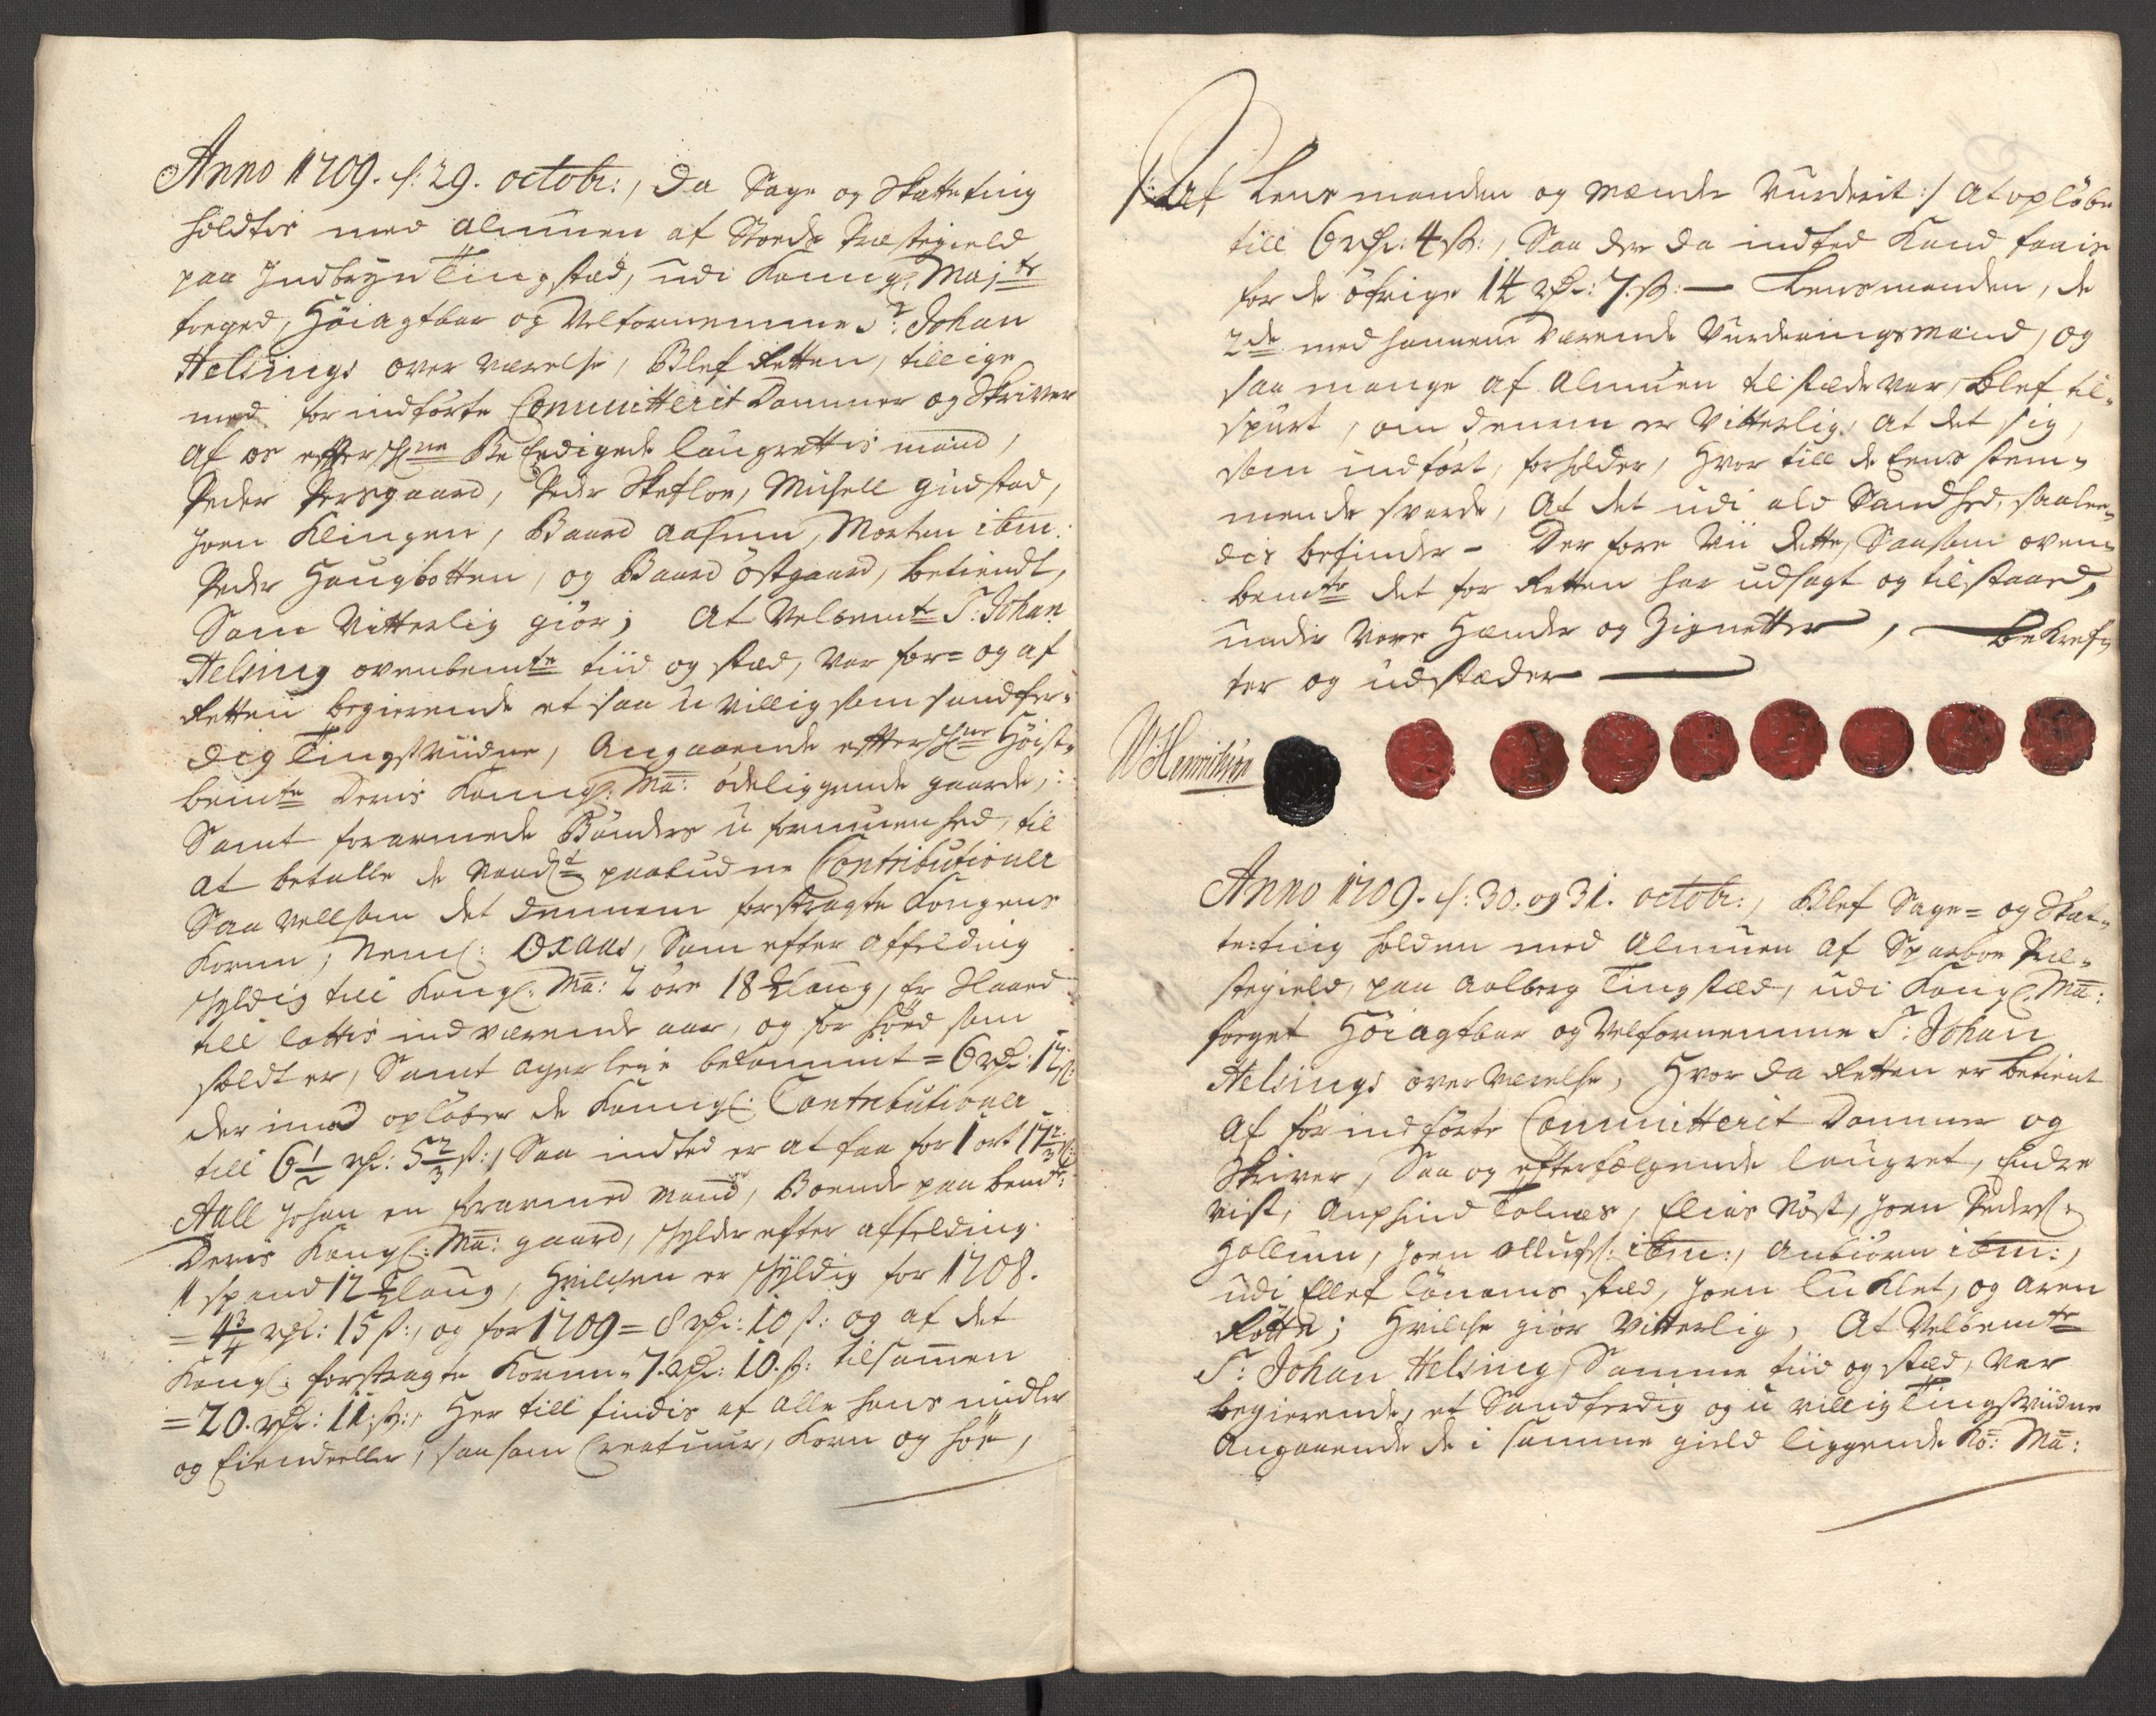 Anno 1709. d: 29. octobr:, da Sage og Skatteting
holdtes med Almuen af Stoeds Præstegield
paa Indbryn Tingstæd, udi Kongl: Maj:ts
foeged, Höiagtbar og Velfornemme Sr: Johan
Helsings over værelse, Blef Retten, tillige
med for indförte Committerit Dommer og Skriver
af os effterschrne Be Eedigede laugrettis mænd,
Peder Persgaard, Peder Skefloe, Michell gudstad,
Joen Klingen, Baard Aasum, Morten ibm:
Peder Haugbotten, og Baard östgaard, betiendt,
Som Vitterlig giör; At Velbemte Sr: Johan
Helsing ovenbemte tiid og stæd, var for= og af
Retten begierende et saa u villig som sandfer=
dig Tingsviidne, Angaaende efterschrne Höist=
bemte Deris Kongl: Ma: ödeliggende gaarde,
Samt forarmede Bönders u formuenhed, til
at betalle de Naadst paabudne Contributioner
Saa vell som det dennem forstragte Kongens
Korn; Neml: Oxaas, Som efter affelding
schyldig till Kongl: Ma: 2 öre 18 Mlaug, er Haard
till lottis indværende aar, og for höed som
soldt er, Samt ager leie bekommet = 6 rdr: 12 s:
der imod oplöber de Kongl: Contributioner
till 6 1/2 rdr: 5 2/3 s:, Saa indted er at faa for 1 ort 17 2/3 s:
Aall Johan en forarmed mand, Boende paa bemte:
Deris Kongl: Ma: gaard, schylder efter affelding
1 spand 12 Mlaug, Hvilchen er schyldig for 1708.
= 4 3/4 rdr: 15 s:, og for 1709 = 8 rdr: 10 s: og af det
Kongl: forstragte Korn = 7. rdr: 10. s: tilsamen
= 20. rdr: 11 s:, Her till findis af alle hans midler
og Eiendeeller, saasom Creatuur, Korn og höe,
/: Af Lensmanden og mænde Vurderit :/ At oplöbe
till 6 rdr: 4 s:, Saa der da indted Kand faais
for de öfrige 14 rdr: 7. s: — Lensmanden, de
2de med hannem værende Vurderingsmænd, og
saa mange af Almuen til stæde var, blef til=
spurt, om denem er Vitterlig, At det sig,
som indfört, forholder, Hvor till de Eens stem=
mende svarde, At det udi ald Sandhed, saalee=
dis befinder - Der fore Vii dette, Saasom oven=
bemte det for Retten har udsagt og tilstaaed,
under Vore Hænder og Zignetter, bekref=
ter og udstæder
W Henrichsøn
Anno 1709. d: 30. og 31. octobr:, Blef Sage= og Skat=
te=ting holden med Almuen af Sparboe Præ=
stegield, paa Aalberg Tingstæd, udi Kongl: Ma:
foeget Höiagtbar og Velfornemme Sr: Johan
Helsings over værelse, Hvor da Retten er betient
Af för indförte Committerit Dommer og
Skriver, Saa og efterfölgende laugret, Endre
Vist, Anphind Tolnæs, Elias Röst, Joen Peders:
Hollum, Joen Olluffs: ibm:, Anbiörn ibm:,
udi Ellef Lönems stæd, Joen Lu Klet, og Aren
Röttø; Hvilche giör Vitterlig, At Velbemte
Sr: Johan Helsing Samme tiid og stæd, var
begierende, et Sandferdig og u villig Tingsviidne
Angaaende de i samme gield liggende Ko: Ma: